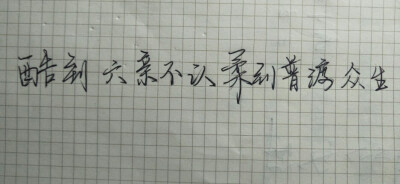 酷到六亲不认柔到普渡众生